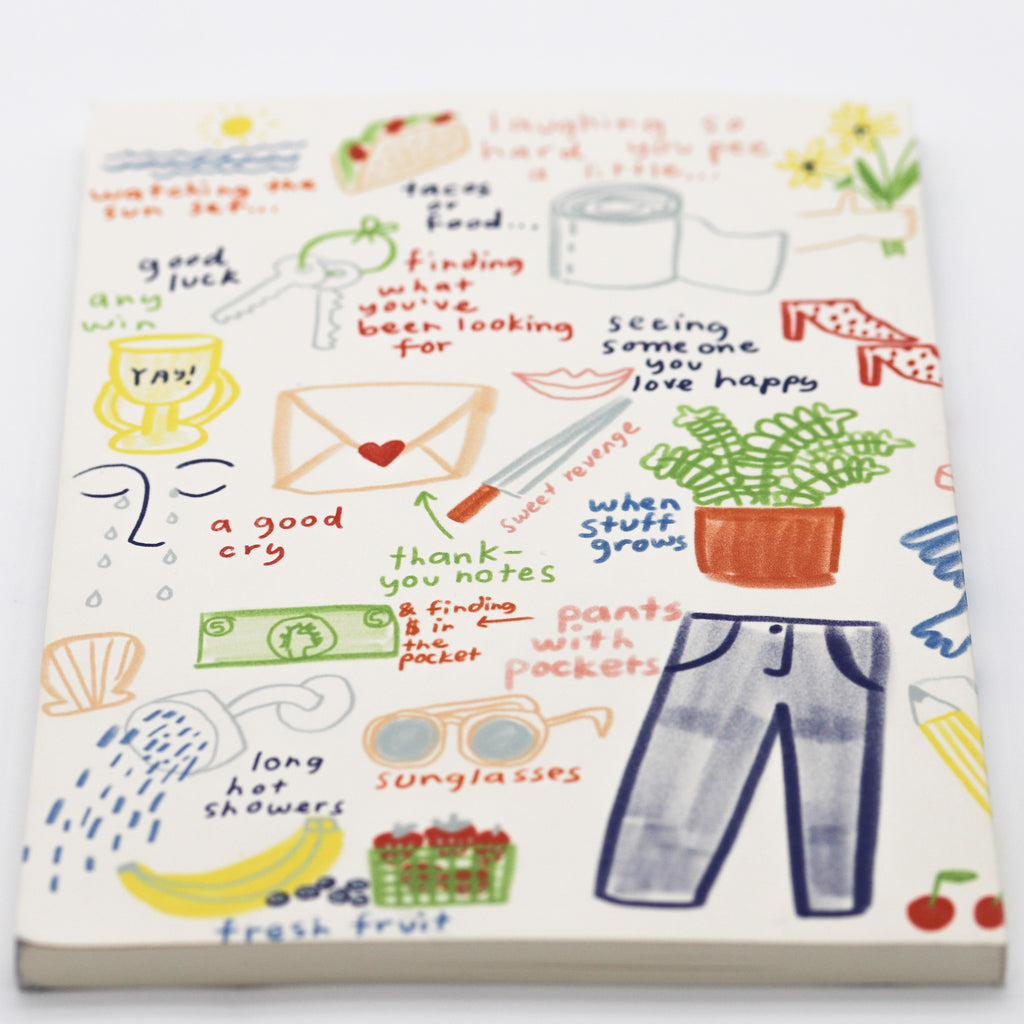 watching the
sun set...
tacos
or
food...
laughing so
hard you pee
a little...
good
luck
any
win
YAY!
finding
what
you've
been looking
for
seeing
someone
you
love happy
sweet revenge
when
stuff
grows
a good
cry
thank-
you notes
5
5
& finding
$ in
the
pocket
pants
with
pockets
long
hot
showers
sunglasses
fresh fruit